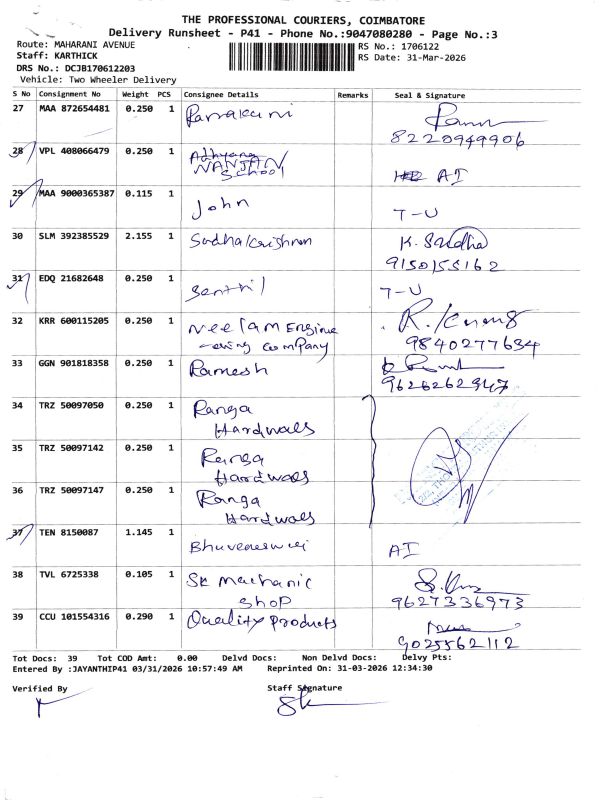 THE PROFESSIONAL COURIERS, COIMBATORE
Delivery Runsheet - P41 - Phone No.:9047080280 - Page No.:3
Route: MAHARANI AVENUE
Staff: KARTHICK
DRS No.: DCJB170612203
Vehicle: Two Wheeler Delivery
RS No.: 1706122
RS Date: 31-Mar-2026
S No Consignment No Weight PCS Consignee Details Remarks Seal & Signature
27 MAA 872654481 0.250 1
8220949906
28 VPL 408066479 0.250 1 NANJAN School AI
29 MAA 9000365387 0.115 1 John 7-U
30 SLM 392385529 2.155 1 Sadhakrishnan K. Sadha
9150155162
31 EDQ 21682648 0.250 1 Senthil 7-U
32 KRR 600115205 0.250 1 Neelam Engine
-ering company
9840277634
33 GGN 901818358 0.250 1 Ramesh
9626262947
34 TRZ 50097050 0.250 1 Ranga
Hardwaes
35 TRZ 50097142 0.250 1 Ranga
Hardwaes
36 TRZ 50097147 0.250 1 Ranga
Hardwaes
37 TEN 8150087 1.145 1 Bhuveneswari AI
38 TVL 6725338 0.105 1 SK Machanic
Shop
9627336973
39 CCU 101554316 0.290 1 Quality Products
9025562112
Tot Docs: 39 Tot COD Amt: 0.00 Delvd Docs: Non Delvd Docs: Delvy Pts:
Entered By :JAYANTHIP41 03/31/2026 10:57:49 AM Reprinted On: 31-03-2026 12:34:30
Verified By Staff Signature